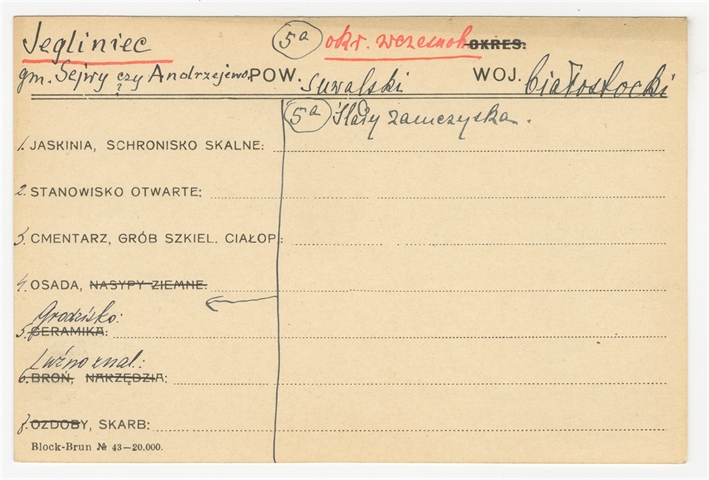 Jegliniec 5a okr. wczesnoh OKRES:
gm. Sejwy czy Andrzejewo. POW. Suwalski WOJ. białostocki
?
5a Ślady zamczyska.
1. JASKINIA, SCHRONISKO SKALNE:
2. STANOWISKO OTWARTE:
3. CMENTARZ, GRÓB SZKIEL. CIAŁOP.:
4. OSADA, NASYPY ZIEMNE:
Grodzisko:
5. CERAMIKA:
Luźno znal.:
6. BROŃ, NARZĘDZIA:
7. OZDOBY, SKARB:
Block-Brun № 43—20.000.